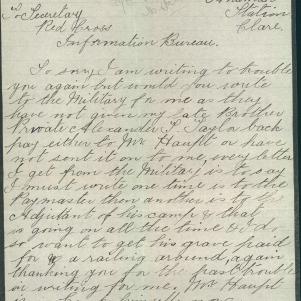 Station
To Secretary
Clare.
Red Cross
Information Bureau.
So sorry I am writing to trouble
you again but would you write
to the Military for me as they
have not given my late Brother
Private Alexander S. Taylor back
pay either to Mr Haupt or have
not sent it on to me, every letter
I get from the Military is to say
I must write one time is to the
Paymaster then another is to the
Adjutant of his camp & that
is going on all the time & I do
so want to get his grave paid
for & a railing around, again
thanking you for the past trouble
or writing for me. Mr Haupt